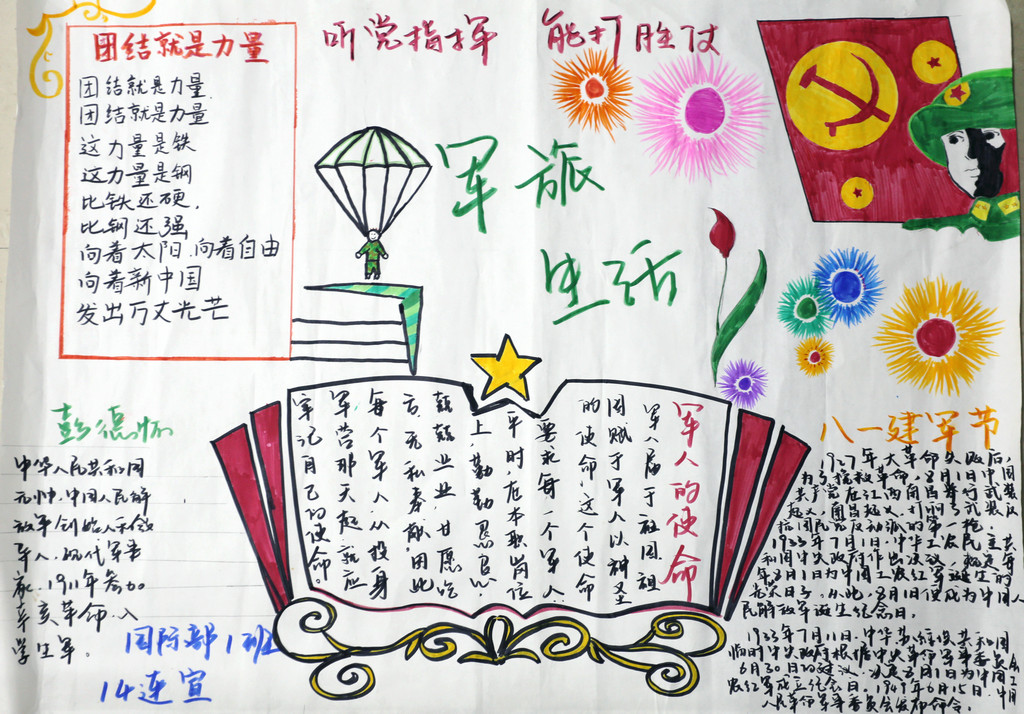 听党指挥 能打胜仗
团结就是力量
团结就是力量
团结就是力量
这力量是铁
这力量是钢
比铁还硬,
比钢还强
向着太阳.向着自由
向着新中国
发出万丈光芒
军旅
生活
彭德怀
中华人民共和国
元帅.中国人民解
放军创始人和领
导人.现代军事
家.1911年参加
辛亥革命.入
学生军。
国际部1班
14连宣
军人的使命
军人属于祖国,祖
国赋于军人以神圣
的使命,这个使命
要求每一个军人.
平时,在本职岗位
上,勤勤恳恳.
兢兢业业,甘愿吃
亏.无私奉献,因此
每个军人.从投身
军营那天起.就应
牢记自己的使命。
八一建军节
1927年大革命失败后,
为了挽救革命,8月1日中国
共产党在江西南昌举行武装
起义,
抗国民党反动派的第一枪.
1933年7月1日.中华工农民主共
和国中央政府作出决议,
年8月1日为中国工农红军诞生的
从此,8月1日便成为中国人
民解放军诞生纪念日.
1933年7月11日.中华苏维埃共和国
临时中央政府根据中央革命军事委员会
6月30日的建议.决定八月1日为中国工
农红军成立纪念日.1949年6月15日.中国
人民革命军事委员会发布命令.